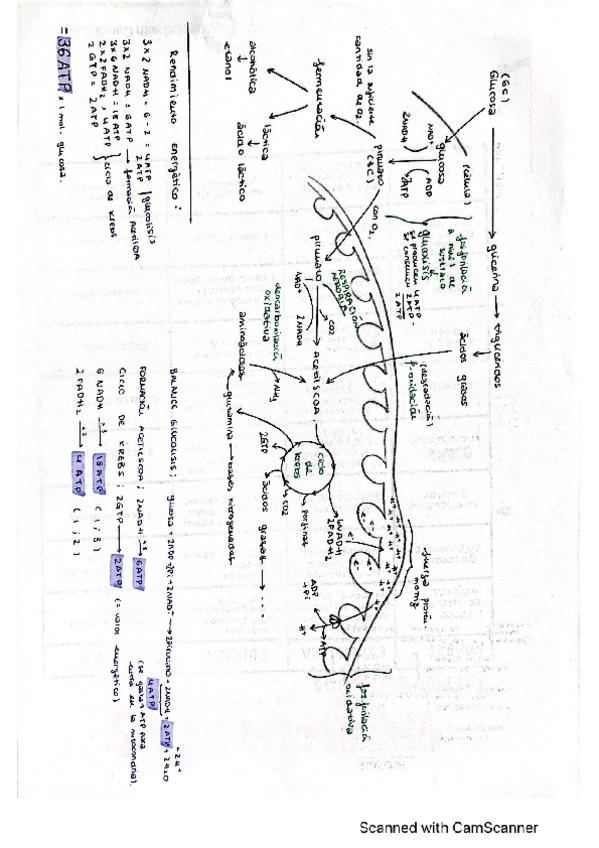 (6C)
Glucosa
glicerina
triglicéridos
(célula)
glucosa
NAD+
2NADH
ADP
2ATP
piruvato
fosforilación
a nivel de
sustrato
glucólisis
se producen 4ATP
se consumen 2ATP
2ATP
ácidos grasos
(degradación)
sin la suficiente
cantidad de O2.
con O2.
fermentación
alcohólica
etanol
láctica
ácido láctico
piruvato
RESPIRACIÓN
AEROBIA
CO2
NAD+
2NADH
Acetil SCOA
descarboxilación
oxidativa
aminoácidos
NH3
ciclo
de
Krebs
6NADH
2FADH2
porfirinas
CO2
ácidos grasos
2GTP
glutamina
bases nitrogenadas
H+
e-
fuerza protón-
motriz
ADP
+Pi
ATP
H+
fosforilación
oxidativa
Rendimiento energético:
3x2 NADH = 6 - 2 = 4ATP
2ATP
glucólisis
3x2 NADH = 6ATP
formación AcetilCOA
3x6 NADH = 18 ATP
2x2FADH2 = 4ATP
2GTP = 2ATP
ciclo de Krebs
= 36ATP x 1 mol. glucosa.
BALANCE GLUCÓLISIS: glucosa + 2ADP + 2Pi + 2NAD+ → 2Piruvato + 2NADH + 2ATP + 2H2O
4ATP
FORMACIÓN ACETILSCOA: 2NADH → 6ATP
(se gastan 2ATP para
entrar en la mitocondria).
CICLO DE KREBS: 2GTP → 2ATP (= valor energético)
6 NADH → 18ATP (1:3)
2 FADH2 → 4ATP (1:2)
Scanned with CamScanner